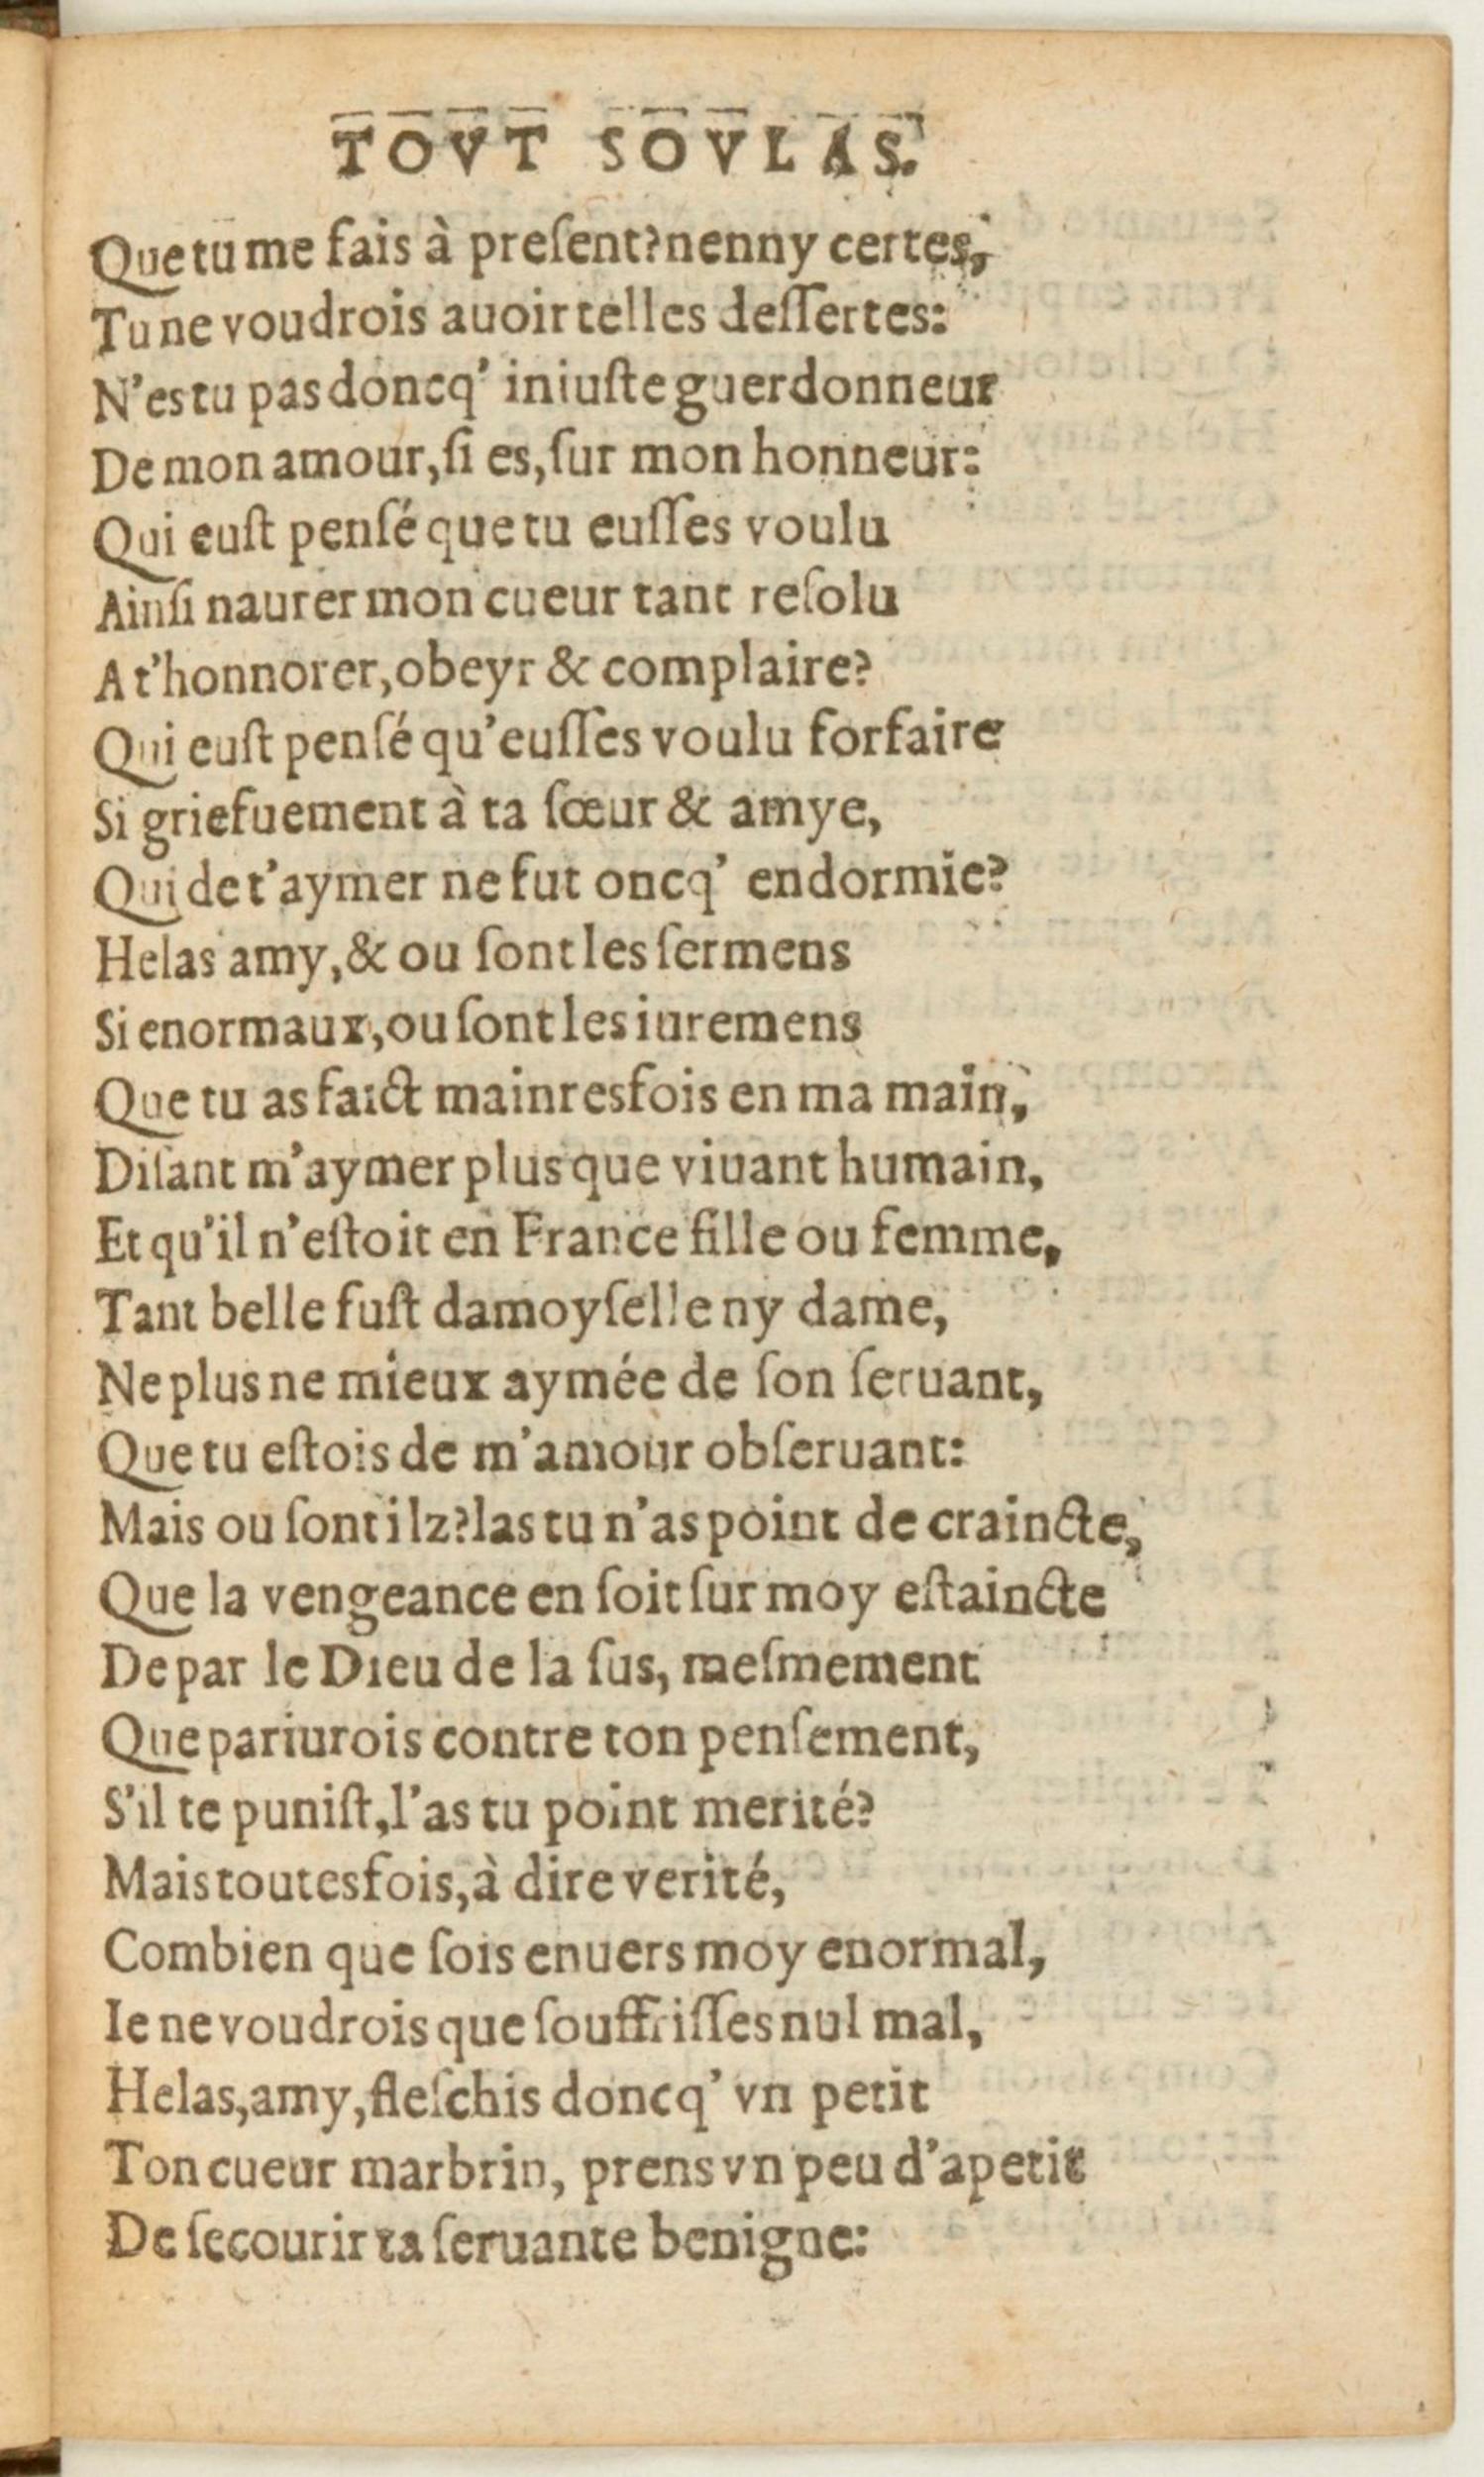 TOVT SOVLAS.
Que tu me fais à preſent? nenny certes,
Tu ne voudrois auoir telles deſſertes:
N'es tu pas doncq' iniuſte guerdonneur
De mon amour, ſi es, ſur mon honneur:
Qui euſt penſé que tu euſſes voulu
Ainſi naurer mon cueur tant reſolu
A t'honnorer, obeyr & complaire?
Qui euſt penſé qu'euſſes voulu forfaire
Si griefuement à ta ſœur & amye,
Qui de t'aymer ne fut oncq' endormie?
Helas amy, & ou ſont les ſermens
Si enormaux, ou ſont les iuremens
Que tu as faict mainresfois en ma main,
Diſant m'aymer plus que viuant humain,
Et qu'il n'eſtoit en France fille ou femme,
Tant belle fuſt damoyſelle ny dame,
Ne plus ne mieux aymée de ſon ſeruant,
Que tu eſtois de m'amour obſeruant:
Mais ou ſont ilz? las tu n'as point de craincte,
Que la vengeance en ſoit ſur moy eſtaincte
De par le Dieu de la ſus, meſmement
Que pariurois contre ton penſement,
S'il te puniſt, l'as tu point merité?
Mais toutesfois, à dire verité,
Combien que ſois enuers moy enormal,
Ie ne voudrois que ſouffriſſes nul mal,
Helas, amy, fleſchis doncq' vn petit
Ton cueur marbrin, prens vn peu d'apetit
De ſecourir ta ſeruante benigne: